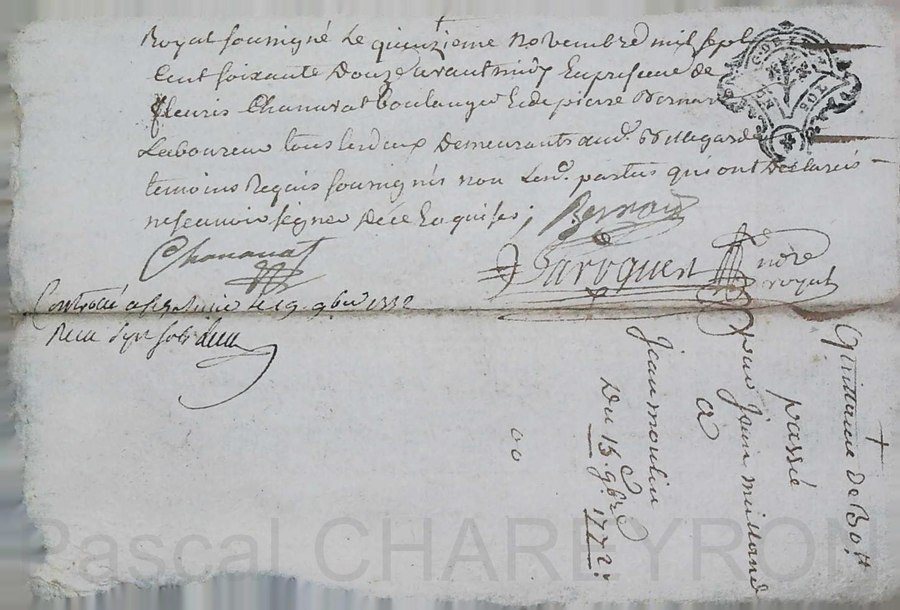 Royal soussigné Le quinzieme novembre mil sept
Cent soixante Douze avant midy En presence de
fleuris Chanavat boulanger Et de pierre Bernard
Laboureur tous les deux Demeurants aud.
temoins Requis soussignés non Les d. parties qui ont Declarés
ne scavoir signer De ce Enquises;
Bernard
Chanavat
notre
royal
Controllé a le 19. 9bre 1772
Recu
Quittance de 30 lt
passé
par Jean
a
Jean moulin
Du 15 9bre 1772.
Pascal CHAREYRON